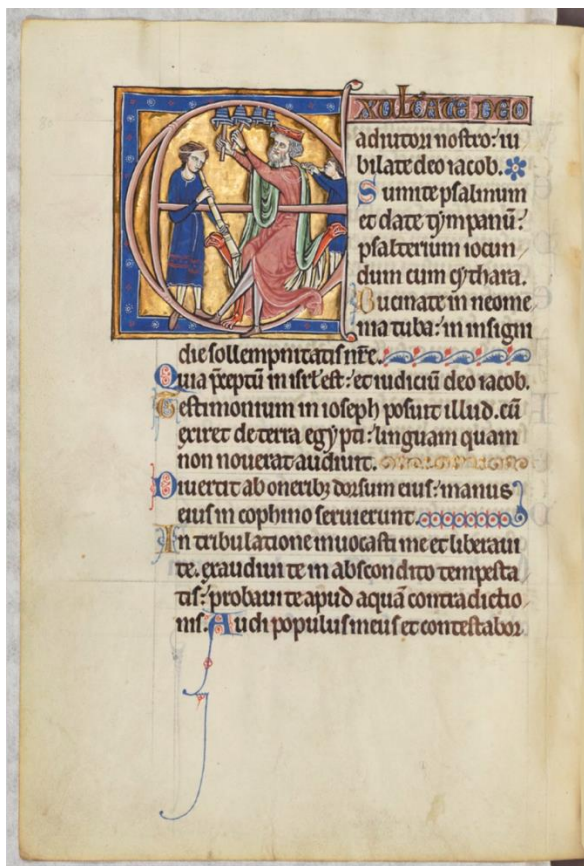 EXULTATE DEO
adiutori nostro: iu
bilate deo iacob.
Sumite psalmum
et date tympanū:
psalterium iocun
dum cum cythara.
Bucinate in neome
nia tuba: in insigni
die sollempnitatis nr̄e.
Quia p̄ceptū in isrl̄ est: et iudiciū deo iacob.
Testimonium in ioseph posuit illud. cū
exiret de terra egypti: linguam quam
non nouerat audiuit.
Diuertit ab oneribꝫ dorsum eius: manus
eius in cophino seruierunt.
In tribulatione inuocasti me et liberaui
te. exaudiui te in abscondito tempesta
tis: probaui te apud aquā contradictio
nis. Audi populus meus et contestabor